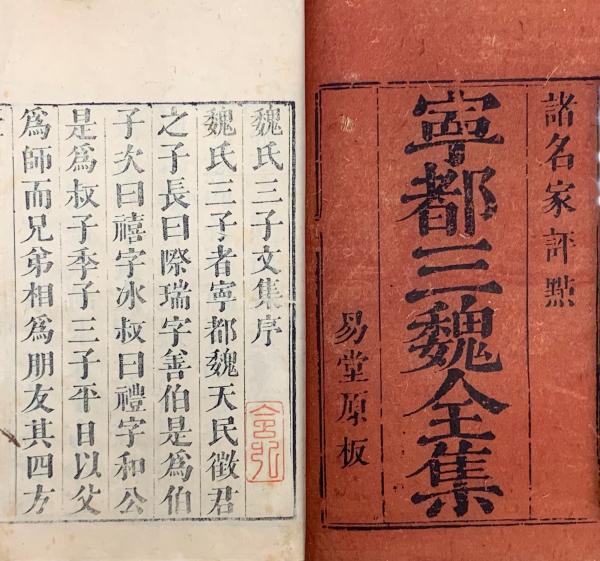 諸名家評點
寧都三魏全集
易堂原板
魏氏三子文集序
魏氏三子者寧都魏天民徵君
之子長曰際瑞字善伯是爲伯
子次曰禧字冰叔曰禮字和公
是爲叔子季子三子平日以父
爲師而兄弟相爲朋友其四方